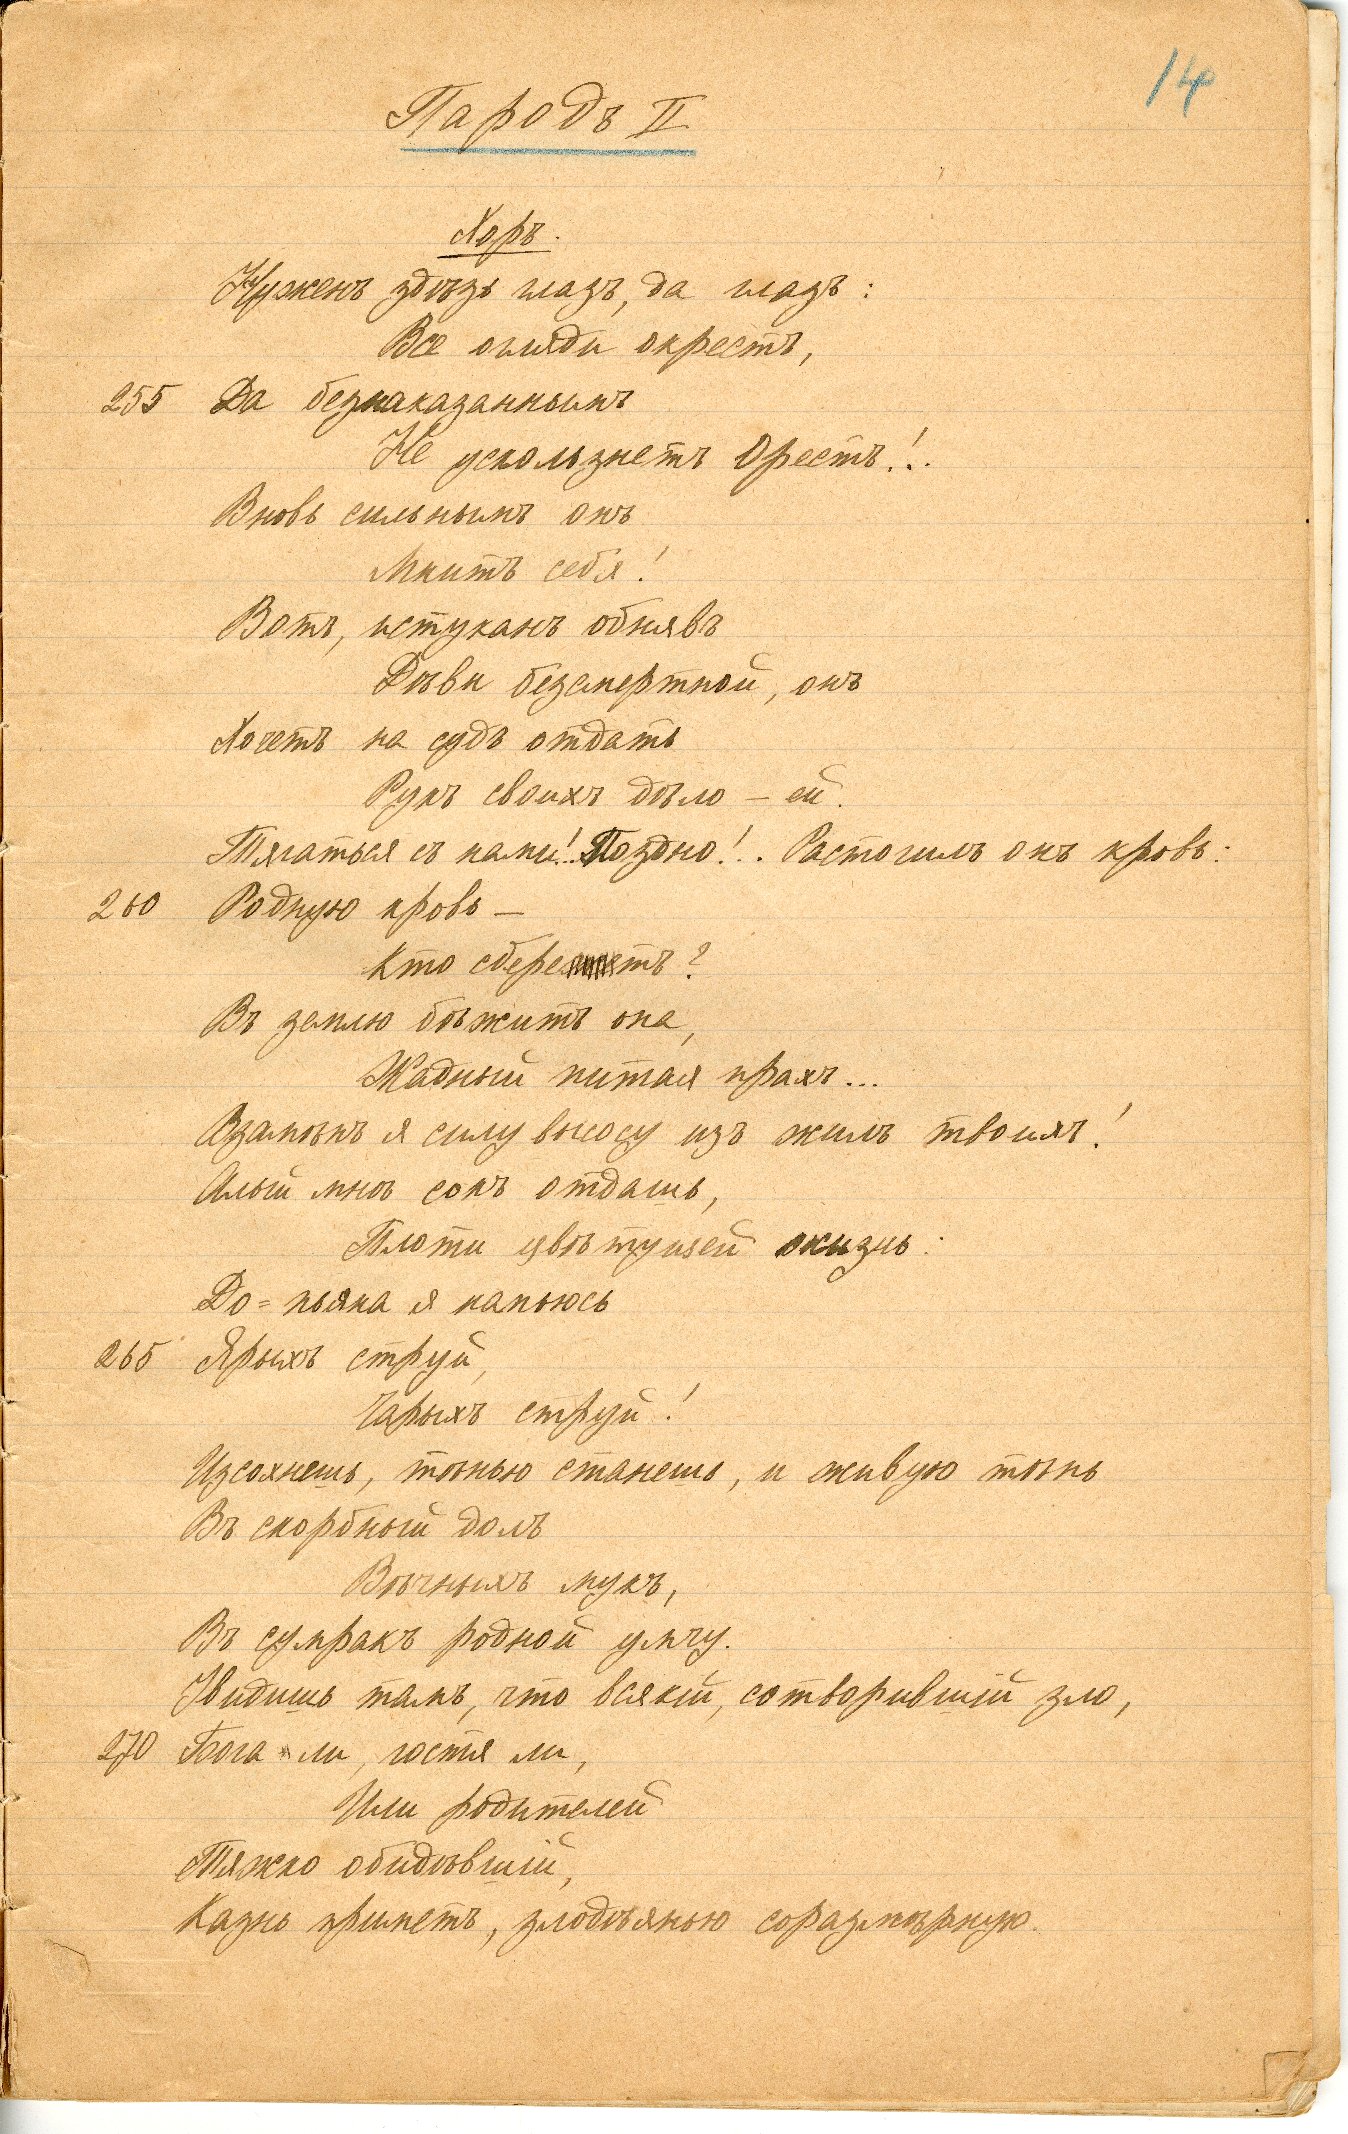 14
Пародъ II
Хоръ.
Нуженъ здѣсь глазъ, да глазъ:
Все огляди окрестъ,
255 Да безнаказаннымъ
Не ускользнетъ Орестъ!..
Вновь сильнымъ онъ
Мнитъ себя!
Вотъ, истуканъ обнявъ
Дѣвы безсмертной, онъ
Хочетъ на судъ отдать
Рукъ своихъ дѣло – ей.
Тягаться съ нами!.. Поздно!.. Расточилъ онъ кровь:
260 Родную кровь –
Кто сберетъ?
Въ землю бѣжитъ она,
Жадный питая прахъ...
Взамѣнъ я силу высосу изъ жилъ твоихъ!
Алый мнѣ сокъ отдашь,
Плоти цвѣтущей жизнь:
До-пьяна я напьюсь
265 Ярыхъ струй,
Чарыхъ струй!
Изсохнешь, тѣнью станешь, и живую тѣнь
Въ скорбный долъ
Вѣчныхъ мукъ,
Въ сумракъ родной умчу.
Увидишь тамъ, что всякій, сотворившій зло,
270 Бога ли, гостя ли,
Или родителей
Тяжко обидѣвшій,
Казнь приметъ, злодѣянью соразмѣрную.